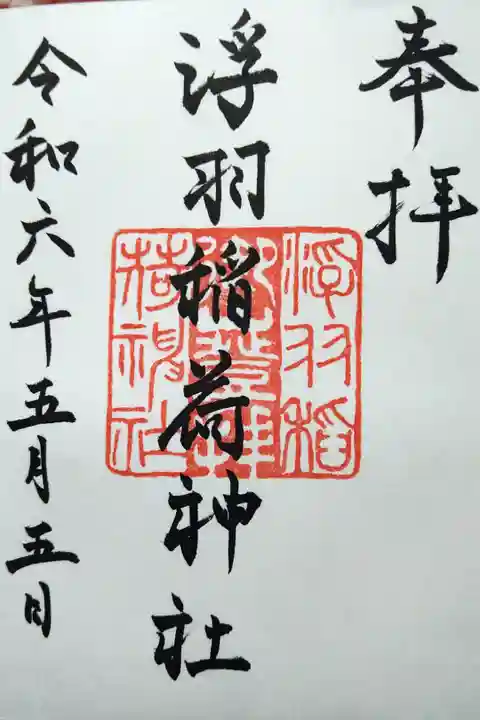 奉拝
浮羽稲荷神社
令和六年五月五日
浮羽稲
荷神社